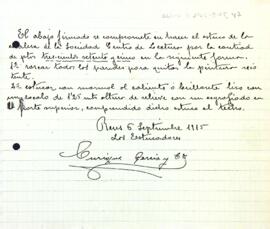 El abajo firmado se compromete en hacer el estuco de la
escalera de la Sociedad Centro de Lectura por la cantidad
de ptas trescientas setenta y cinco en la siguiente forma.
1º rascar todas las paredes para quitar la pintura exis
tente.
2º estucar con marmol al caliente o brillante liso con
un zocalo de 1'25 mt altura de relieve con un esgrafiado en
la parte superior, comprendido dicho estuco el techo.
Reus 6 Septiembre 1915
Los Estucadores
Enrique Garcia y Cª